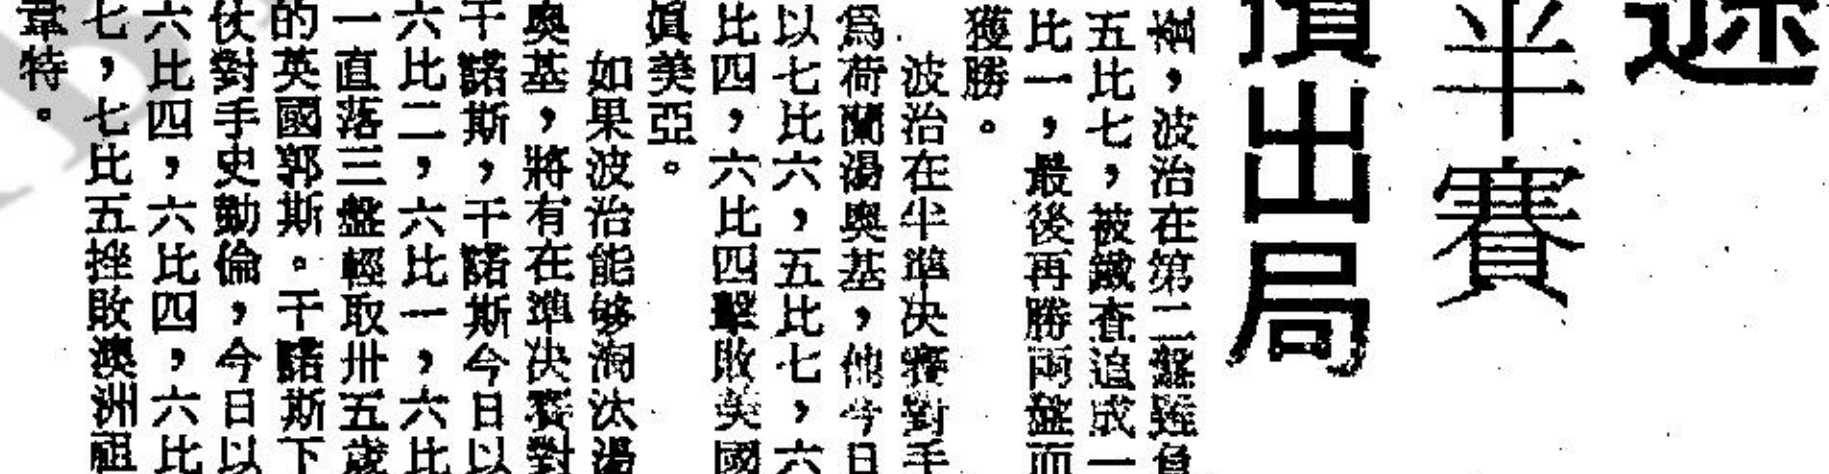 逐
半賽
出局
，波治在第二盤雖負
五比七，被鐵查追成一
比一，最後再勝兩盤而
獲勝。
波治在半準决賽對手
爲荷蘭湯奧基，他今日
以七比六，五比七，六
比四，六比四擊敗美國
眞美亞。
如果波治能够淘汰湯
奧基，將有在準决賽對
干諾斯，干諾斯今日以
六比二，六比一，六比
一直落三盤輕取卅五歲
的英國郭斯。干諾斯下
仗對手史勤倫，今日以
六比四，六比四，六比
七，七比五挫敗澳洲祖
韋特。